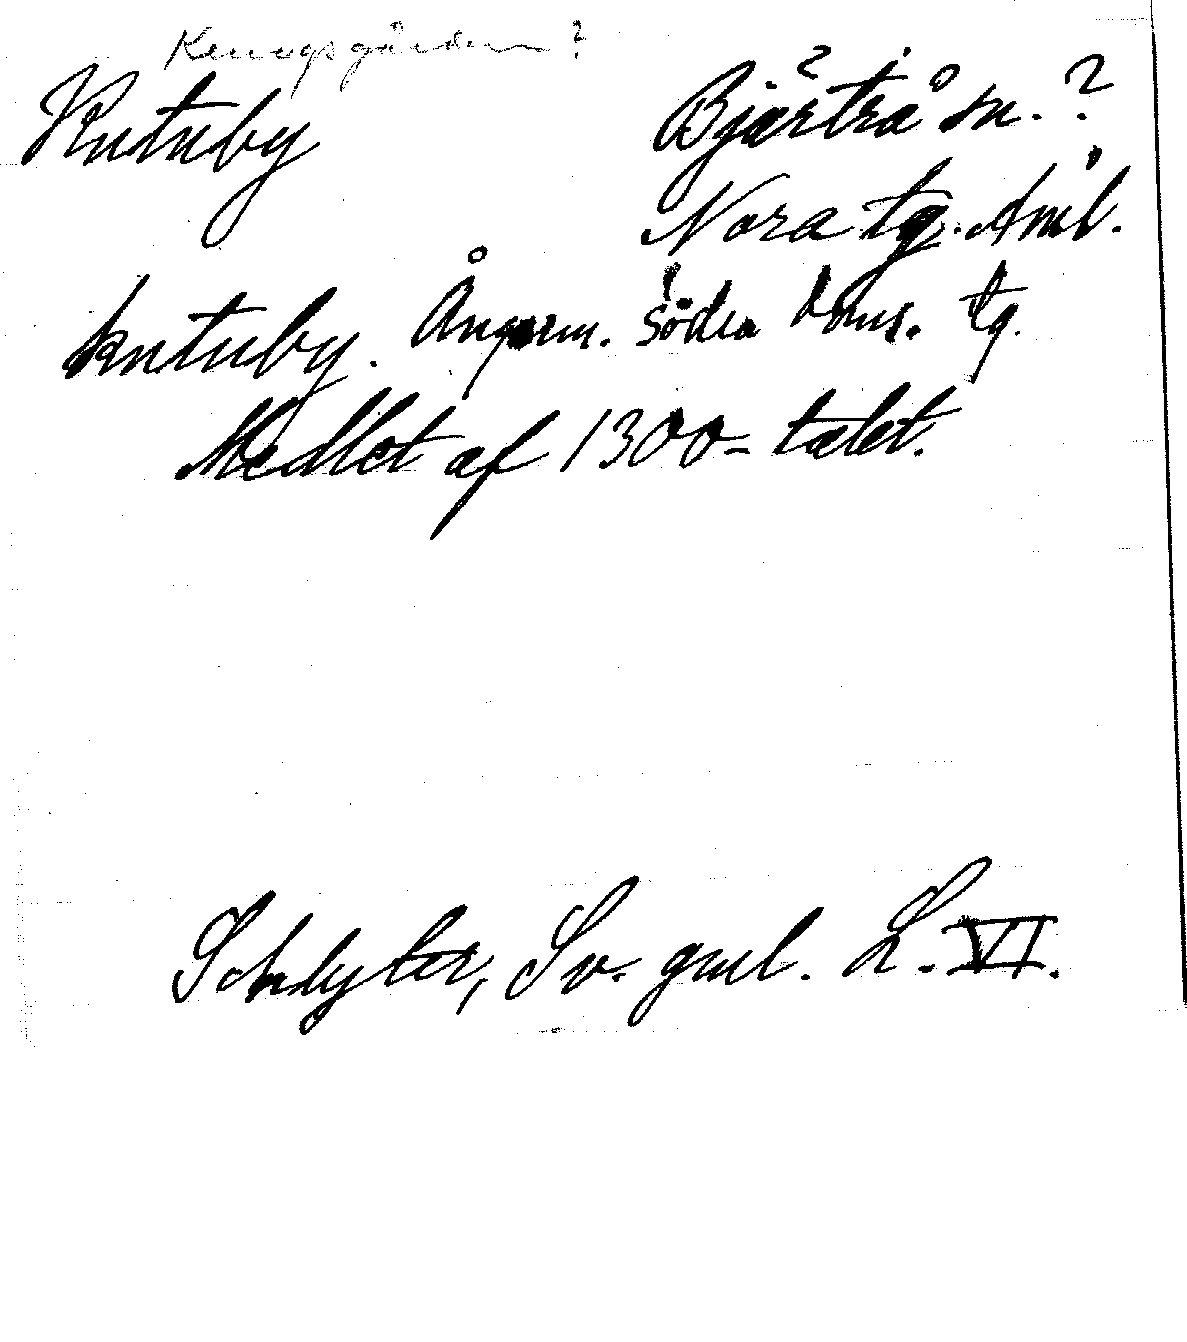 Kungsgården ?
Knutuby Bjärtrå sn. ?
Nora tg. Åml.
knutuby. Ångerm. södra doms. tg.
Medlet af 1300-talet.
Schlyter, Sv. gml. L. VI.